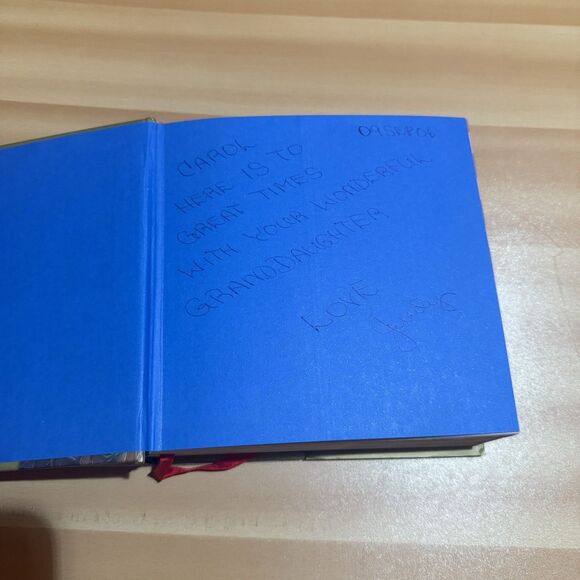 09SEP06
CAROL
HERE IS TO
GREAT TIMES
WITH YOUR WONDERFUL
GRANDDAUGHTER
LOVE
Judy